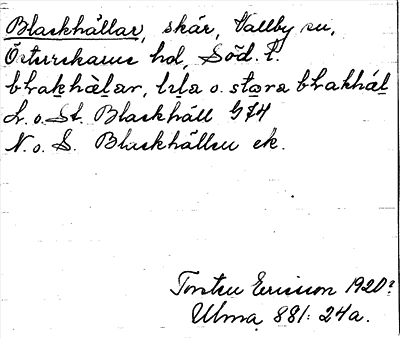 Blackhällar, skär, Vallby sn,
Österrekarne hd, Söd. l.
blakhàlar, lıla o. stora blakhál
L. o. St. Blackhäll G74
N. o. S. Blackhällen ek.
Torsten Ericsson 1920?
Ulma 881: 24a.